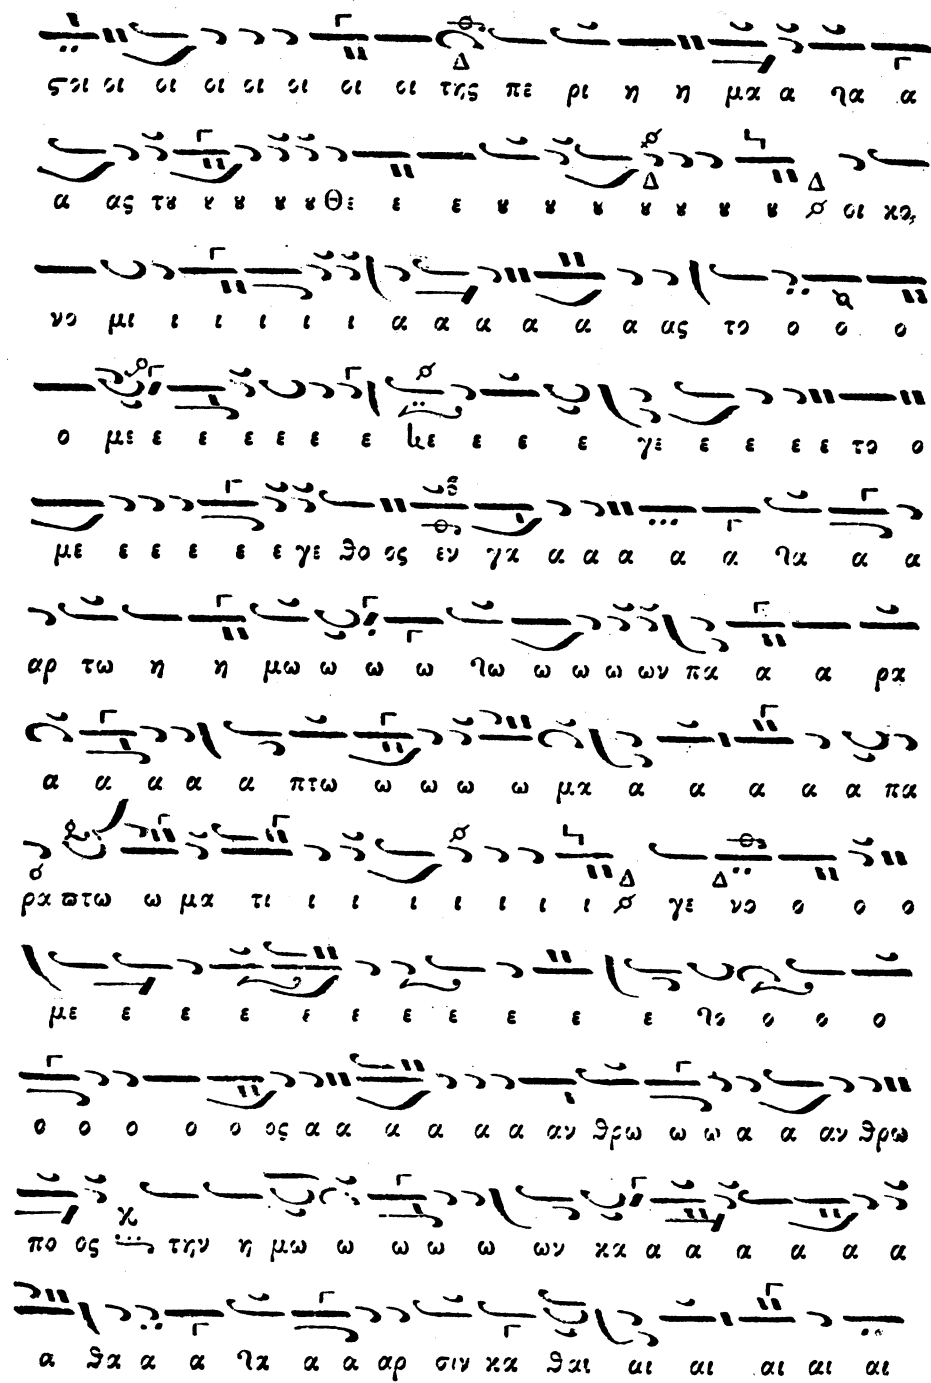 ςοι οι οι οι οι οι οι οι της πε ρι η η μα α τα α
α ας τȣ ȣ ȣ ȣ ȣ Θε ε ε ȣ ȣ ȣ ȣ ȣ ȣ ȣ οι κο,
νο μι ι ι ι ι ι α α α α α α ας το ο ο ο
ο με ε ε ε ε ε ε ε ε ε ε γε ε ε ε ε το ο
με ε ε ε ε ε γε θο ος εν γα α α α α α τα α α
αρ τω η η μω ω ω ω τω ω ω ω ων πα α α ρα
α α α α α πτω ω ω ω ω μα α α α α α πα
ρα πτω ω μα τι ι ι ι ι ι ι ι γε νο ο ο ο
με ε ε ε ε ε ε ε ε ε ε το ο ο ο
ο ο ο ο ο ος α α α α α α αν θρω ω ω α α αν θρω
πο ος την η μω ω ω ω ω ων κα α α α α α α
α θα α α τα α α αρ σιν κα θαι αι αι αι αι αι